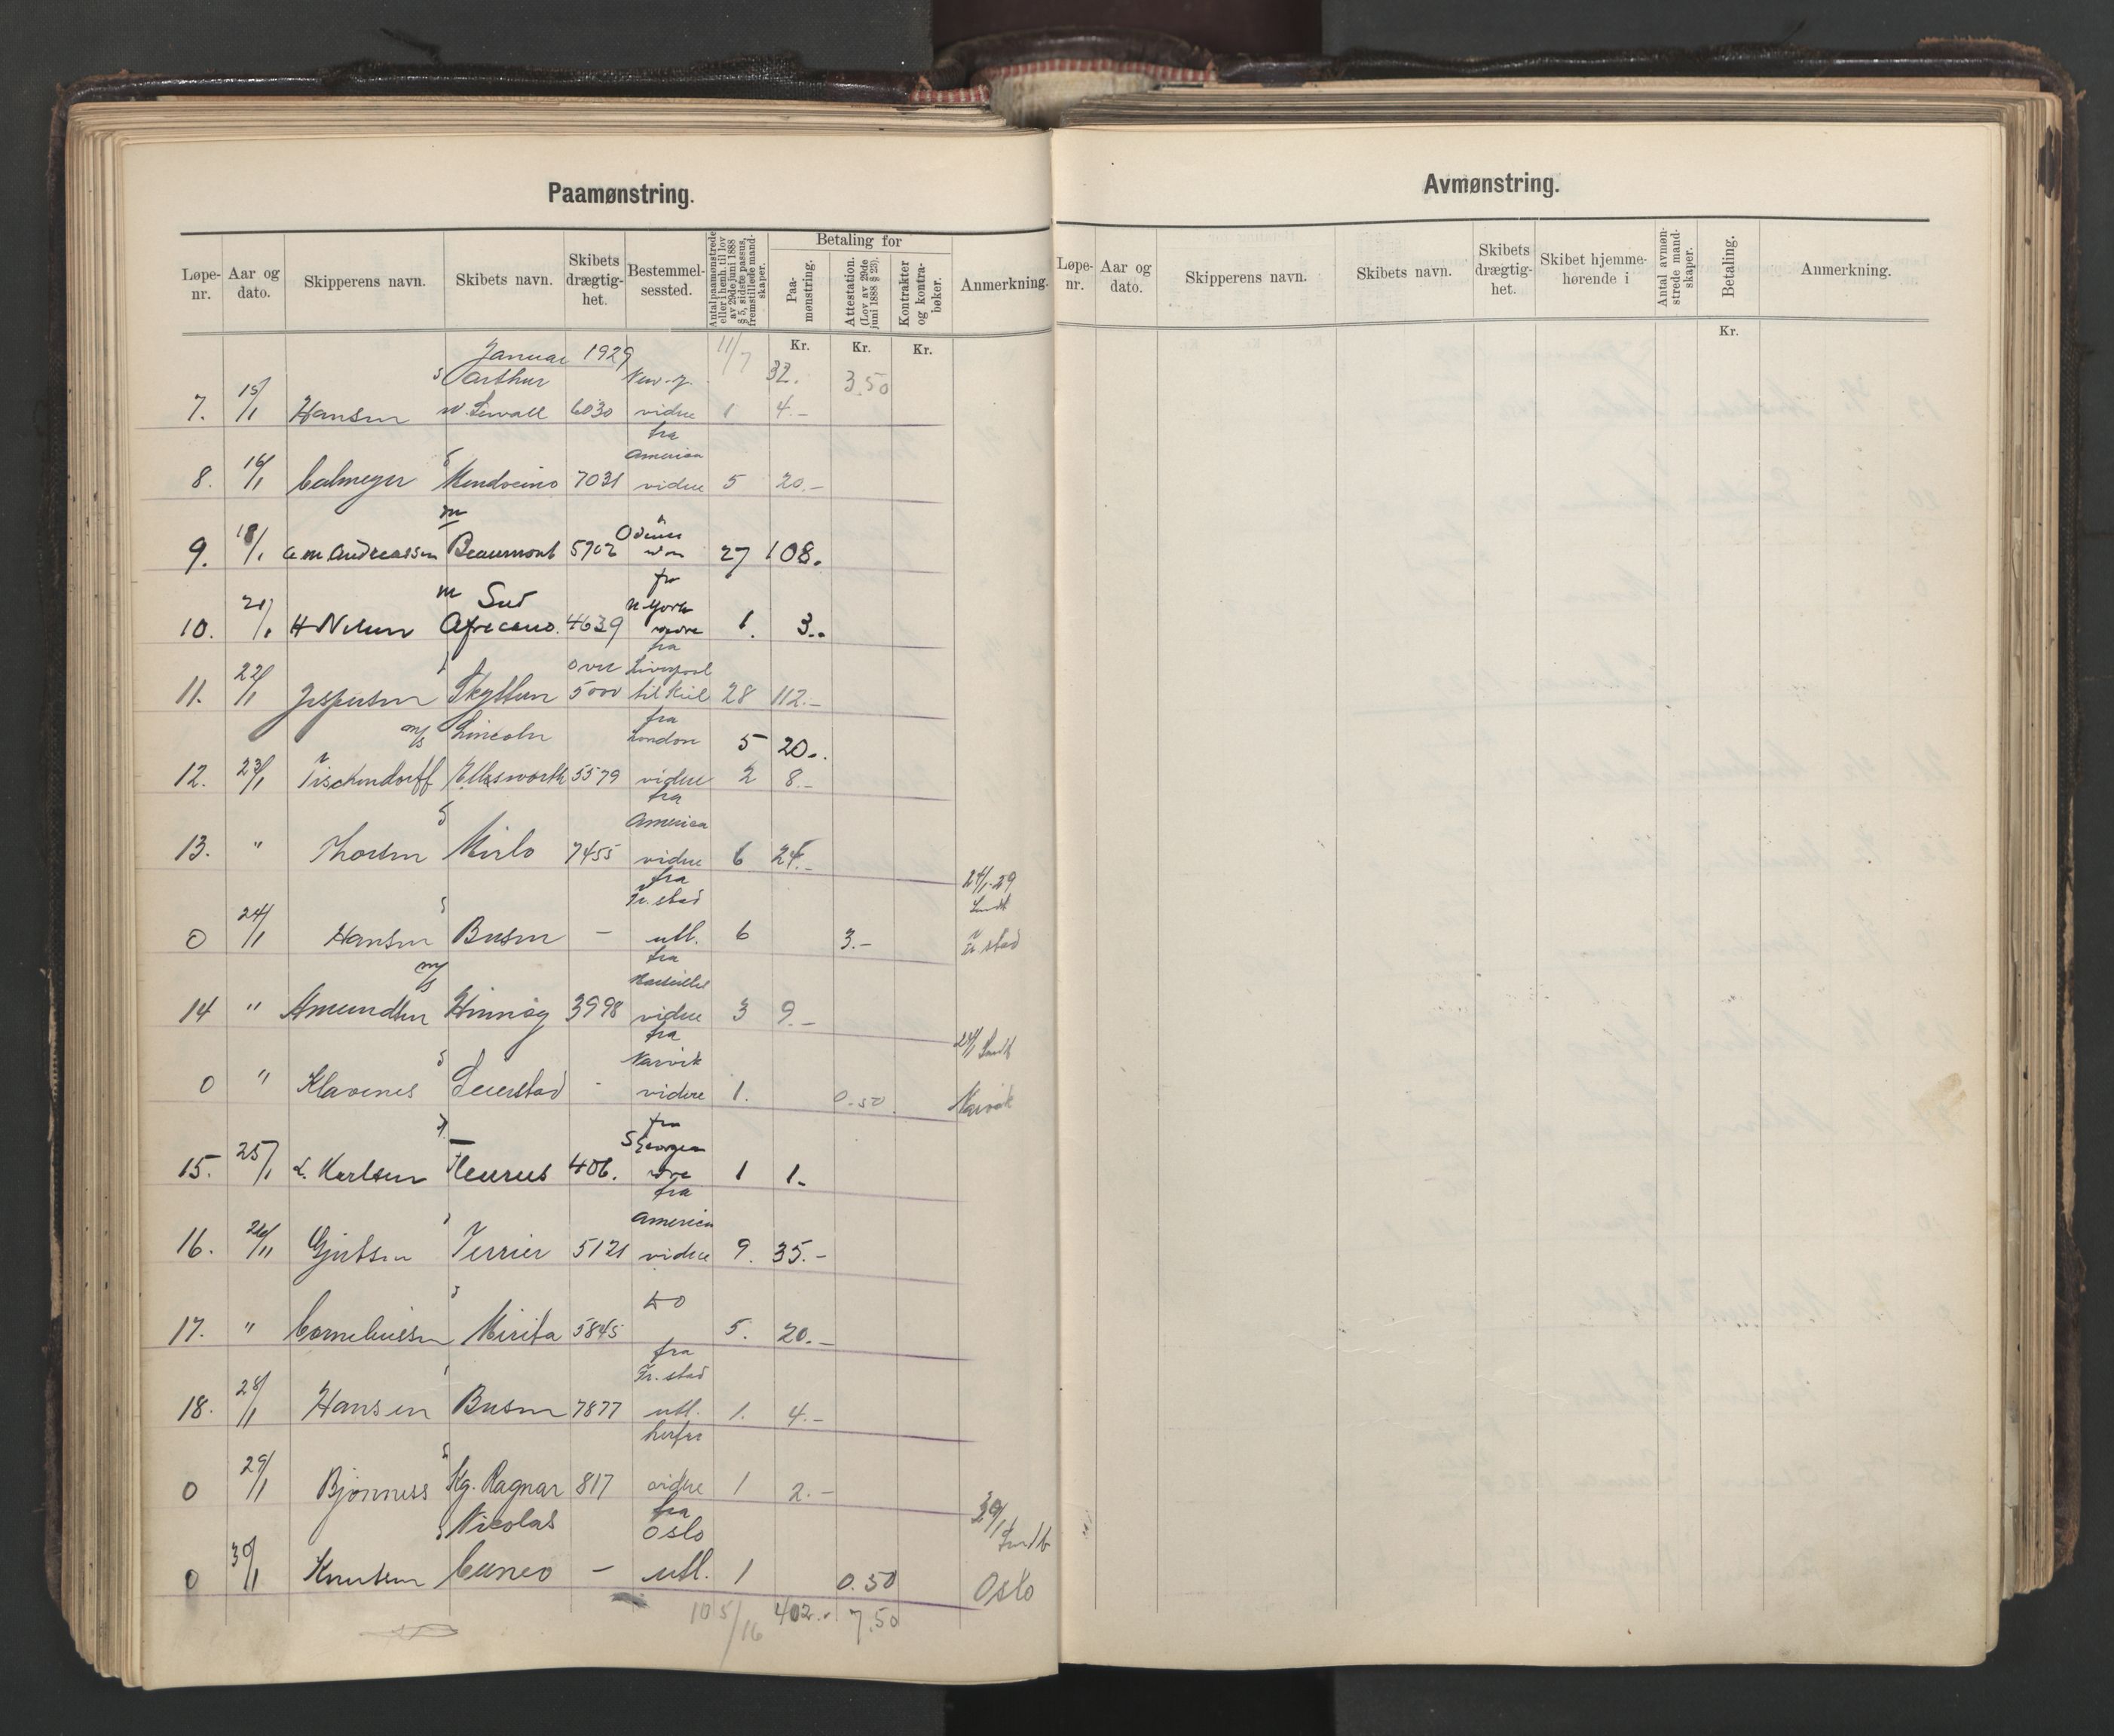 Paamønstring.
Løpe-nr. Aar og dato. Skipperens navn. Skibets navn. Skibets drægtig-het. Bestemmel-sessted. Antal paamønstrede eller i henh. til lov av 29de juni 1888 § 5, sidste passus, fremstillede mand-skaper. Betaling for Paa-mønstring. Attestation. (Lov av 29de juni 1888 § 23). Kontrakter og kontra-bøker. Anmerkning.
Kr. Kr. Kr.
Januar 1929 11/7
s Arthur New-y. 32. 3.50
7. 15/1 Hansen W. Sewall 6030 videre 1 4.-
fra
s America
8. 16/1 Calmeyer Mendocino 7031 videre 5 20.-
m
9. 18/1 A M Andreassen Beaumont 5902 27 108.
fra
m Sud N-York
10. 21/1 H Nilsen Africano. 4639 vidre 1. 3..
fra
over Liverpool
11. 22/1 Jespersen Skytteren 5000 til Kiel 28 112.-
fra
m/s Lincoln London 5 20..
12. 23/1 Tischendorff Ellsworth 5579 videre 2 8.-
fra
s America
13. " Thorsen Mirlo 7455 videre 6 24.-
fra 24/1-29
s Fr.stad Sendt
0 24/1 Hansen Busen - utl. 6 3.- Fr.stad
fra
m/s Marseilles
14 " Amundsen Hinnøy 3998 videre 3 9.-
fra 24/1 Sendt
s Narvik
0 " Klavenes Seierstad - videre 1. 0.50 Narvik
fra
S Georgia
15. 25/1 L. Karlsen Fleurus 406. vdre 1 1.
fra
America
16. 26/11 Gjertsen Terrier 5121 videre 9. 35.-
s do
17. " Corneliussen Mirita 5845 5. 20.-
fra
Fr.stad
18. 28/1 Hansen Busen 7877 utl. 1. 4.-
herfra
s
0 29/1 Bjønness Kg. Ragnar 817 vidre 1 2.-
fra
s Nicolas Oslo 29/1 Sendt
0 30/1 Knutsen Cuneo - utl. 1 0.50 Oslo
105/16 402.. 7.50
Avmønstring.
Løpe-nr. Aar og dato. Skipperens navn. Skibets navn. Skibets drægtig-het. Skibet hjemme-hørende i Antal avmøn-strede mand-skaper. Betaling. Anmerkning.
Kr.